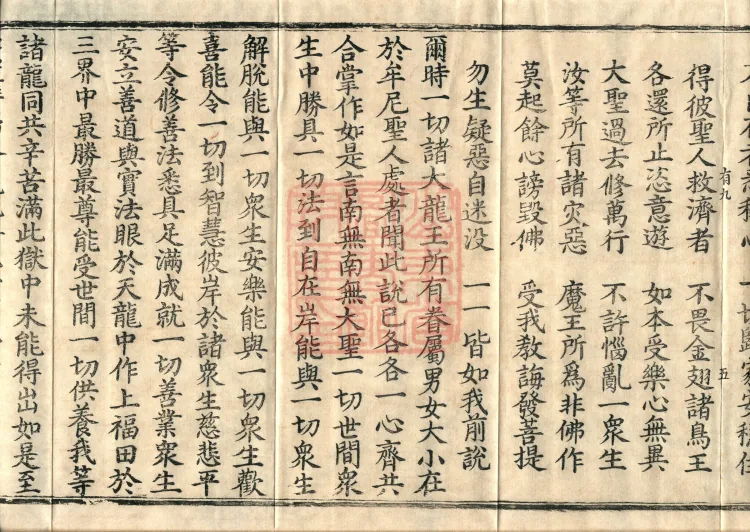 得彼聖人救濟者　不畏金翅諸鳥王
有九　五
各還所止恣意遊　如本受樂心無異
大聖過去修萬行　不許惱亂一衆生
汝等所有諸灾惡　魔王所爲非佛作
莫起餘心謗毀佛　受我教誨發菩提
勿生疑惡自迷没　一一皆如我前說
爾時一切諸大龍王所有眷屬男女大小在
於牟尼聖人處者聞此說已各各一心齊共
合掌作如是言南無南無大聖一切世間衆
生中勝具一切法到自在岸能與一切衆生
解脫能與一切衆生安樂能與一切衆生歡
喜能令一切到智慧彼岸於諸衆生慈悲平
等令修善法悉具足滿成就一切善業衆生
安立善道與實法眼於天龍中作上福田於
三界中最勝最尊能受世間一切供養我等
諸龍同共辛苦滿此獄中未能得出如是至